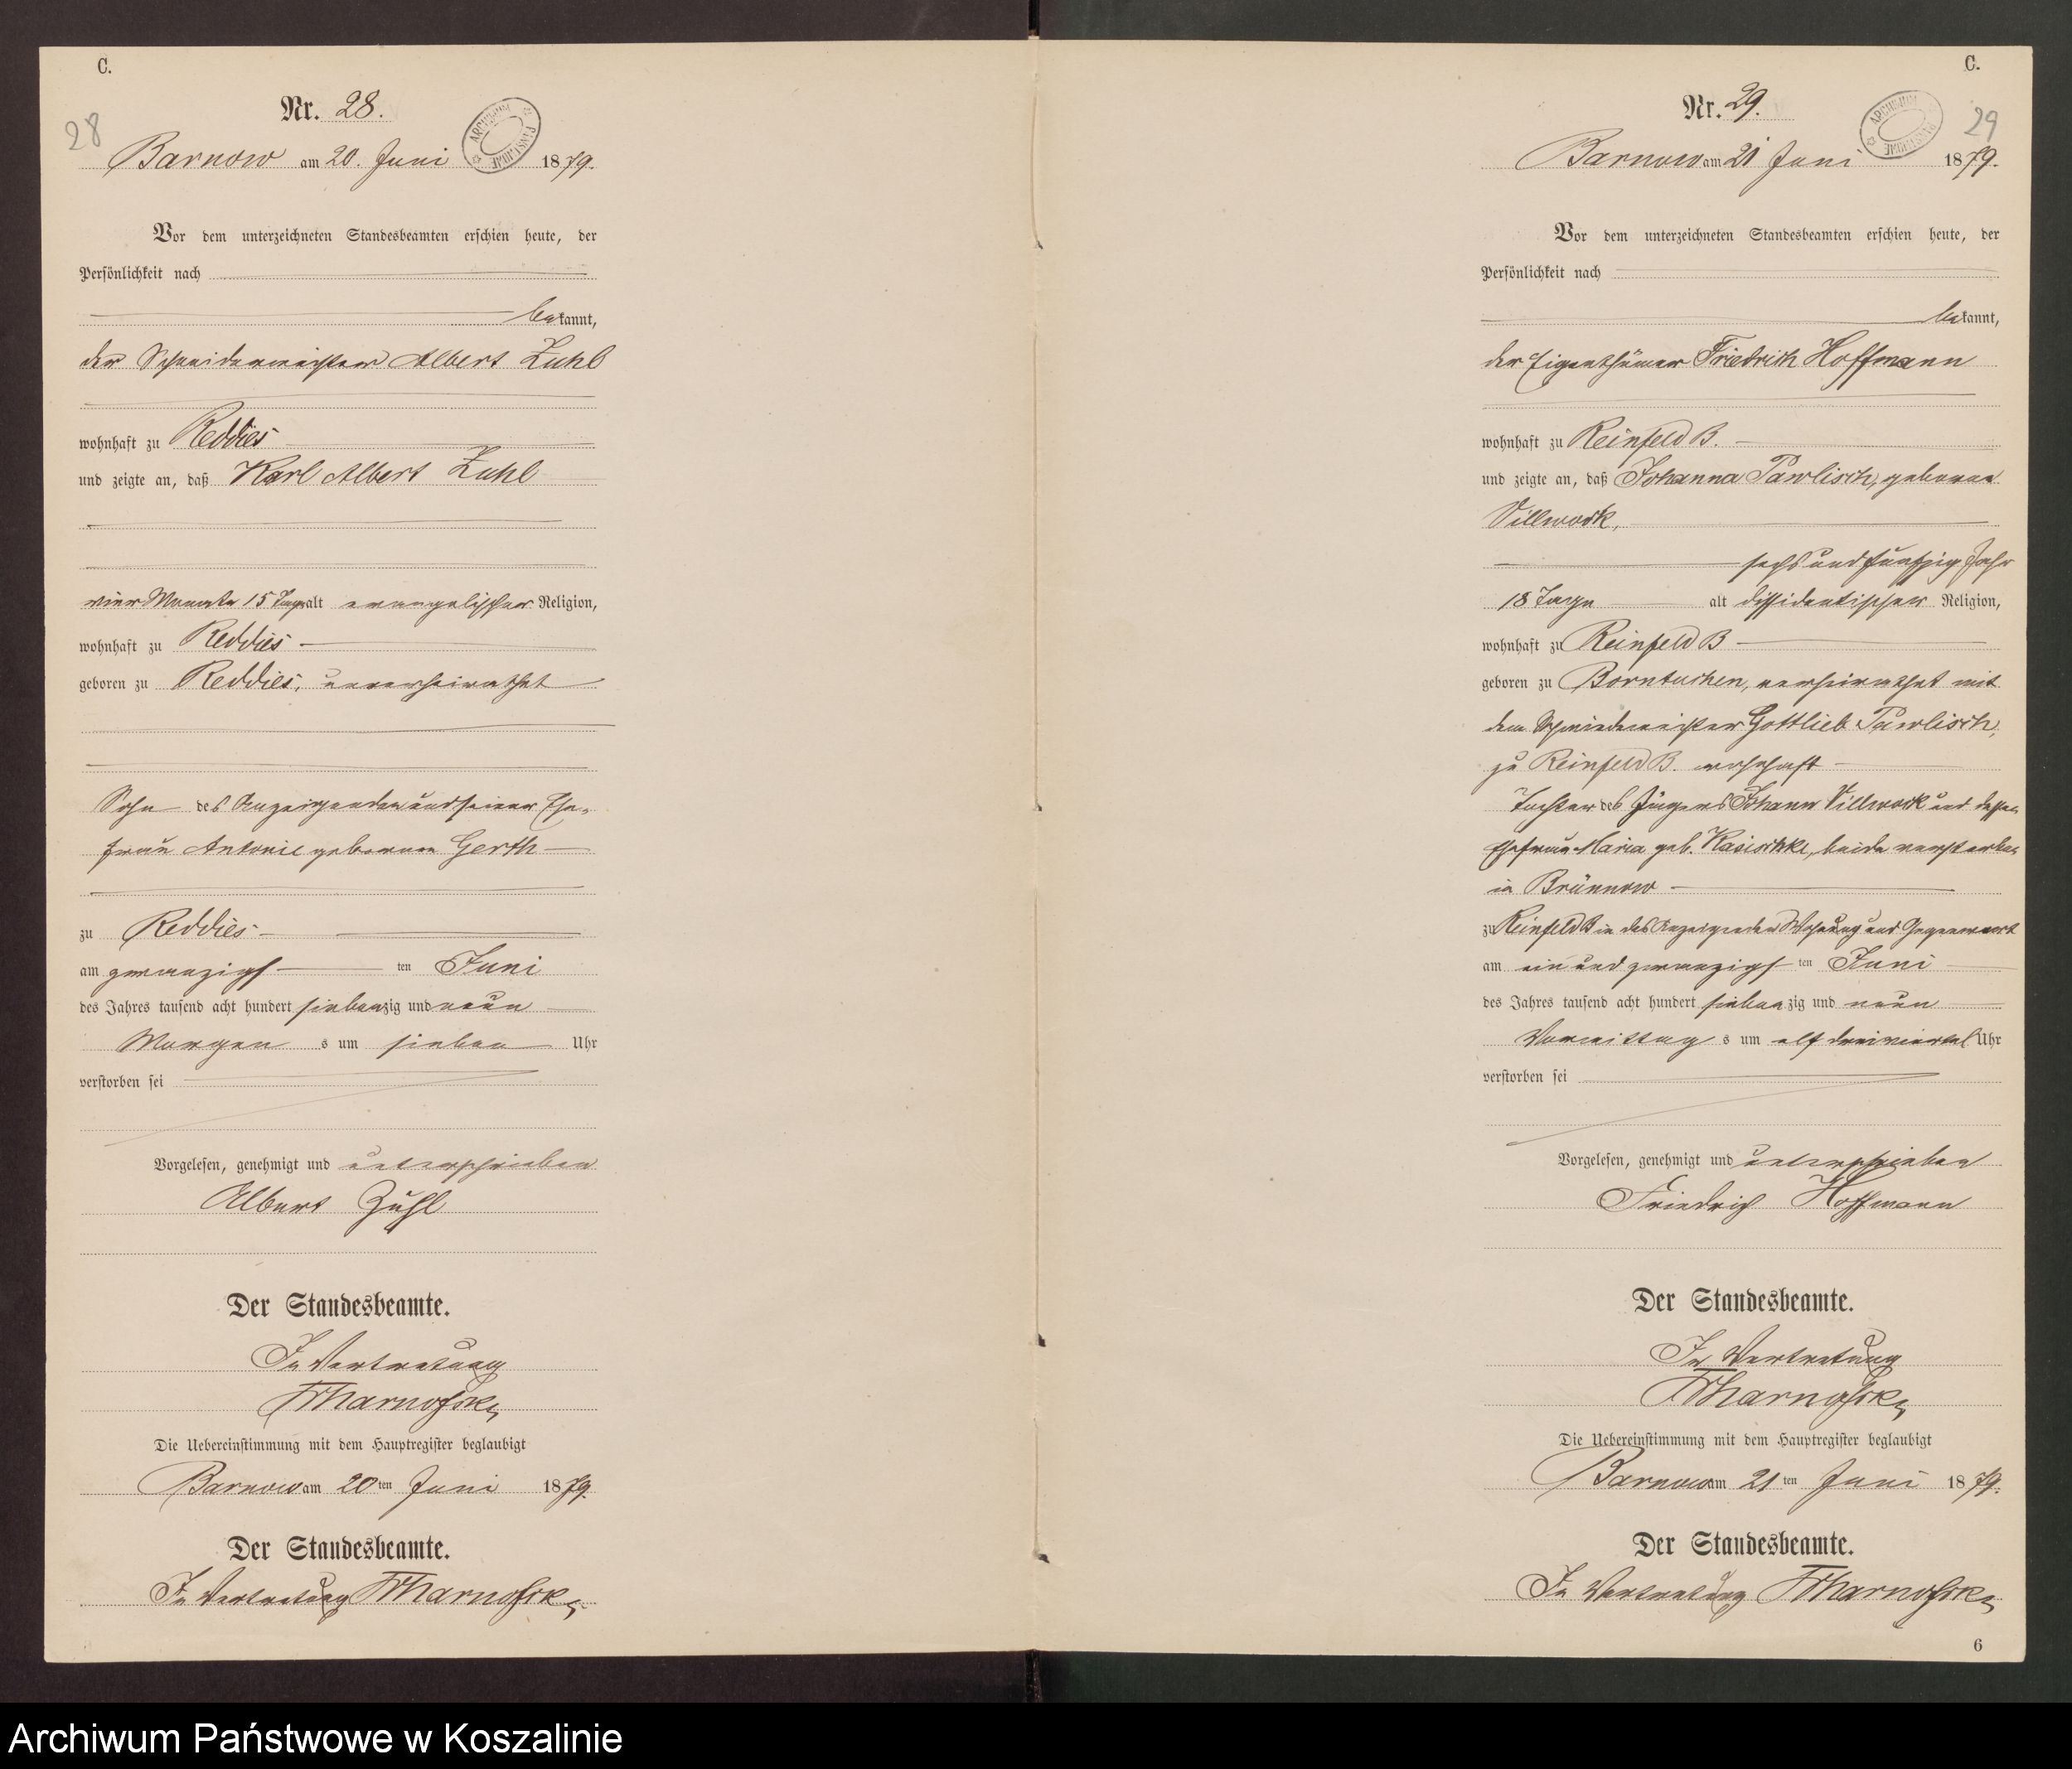 C.
28
Nr. 28.
ARCHIWUM PAŃSTWOWE
Barnow am 20. Juni 1879.
Vor dem unterzeichneten Standesbeamten erschien heute, der
Persönlichkeit nach
bekannt,
der Schneidermeister Albert Zuhl
wohnhaft zu Reddies
und zeigte an, daß Karl Albert Zuhl
vier Monate 15 Tage alt evangelischer Religion,
wohnhaft zu Reddies
geboren zu Reddies, unverheirathet
Sohn des Anzeigenden und seiner Ehe-
frau Antonie geborenen Gerth
zu Reddies
am zwanzigsten Juni
des Jahres tausend acht hundert siebenzig und neun
Morgens um sieben Uhr
verstorben sei
Vorgelesen, genehmigt und unterschrieben
Albert Zuhl
Der Standesbeamte.
In Vertretung
Die Uebereinstimmung mit dem Hauptregister beglaubigt
Barnow am 20ten Juni 1879.
Der Standesbeamte.
In Vertretung
C.
29
Nr. 29.
ARCHIWUM PAŃSTWOWE
Barnow am 21 Juni 1879.
Vor dem unterzeichneten Standesbeamten erschien heute, der
Persönlichkeit nach
bekannt,
der Eigenthümer Friedrich Hoffmann
wohnhaft zu Reinfeld B.
und zeigte an, daß Johanna Pawlisch, geborene
Villwock,
sechs und funfzig Jahr
18 Tage alt dissidentischer Religion,
wohnhaft zu Reinfeld B
geboren zu Borntuchen, verheirathet mit
dem Schmiedemeister Gottlieb Pawlisch,
zu Reinfeld B. wohnhaft
Tochter des Johann Villwock und dessen
Ehefrau Maria geb. Kasischke, beide verstorben
in Brünnow
zu Reinfeld B in des Anzeigenden Wohnung und Gegenwart
am ein und zwanzigsten Juni
des Jahres tausend acht hundert siebenzig und neun
Vormittags um elf dreiviertel Uhr
verstorben sei
Vorgelesen, genehmigt und unterschrieben
Friedrich Hoffmann
Der Standesbeamte.
In Vertretung
Die Uebereinstimmung mit dem Hauptregister beglaubigt
Barnow am 21ten Juni 1879.
Der Standesbeamte.
In Vertretung
6
Archiwum Państwowe w Koszalinie